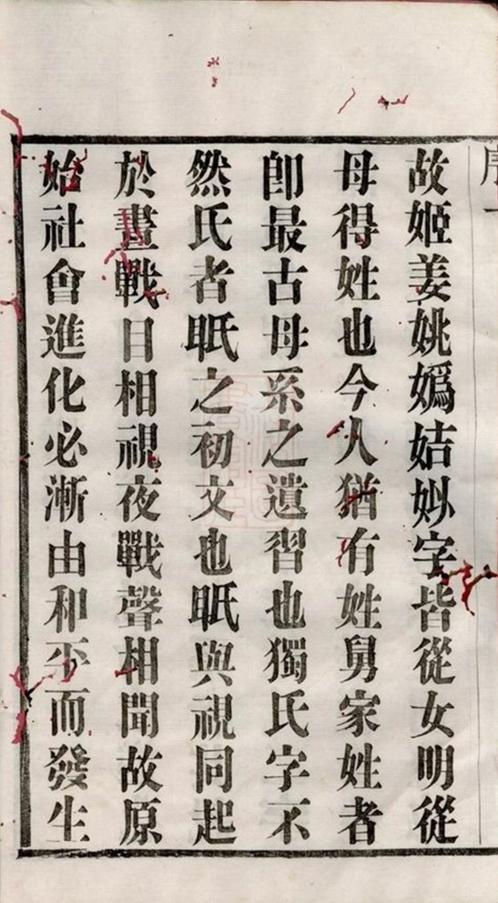 故姬姜姚嬀姞妙字皆從女明從
母得姓也今人猶有姓舅家姓者
卽最古母系之遺習也獨氏字不
然氏者眂之初文也眂與視同起
於晝戰日相視夜戰聲相聞故原
始社會進化必漸由和平而發生